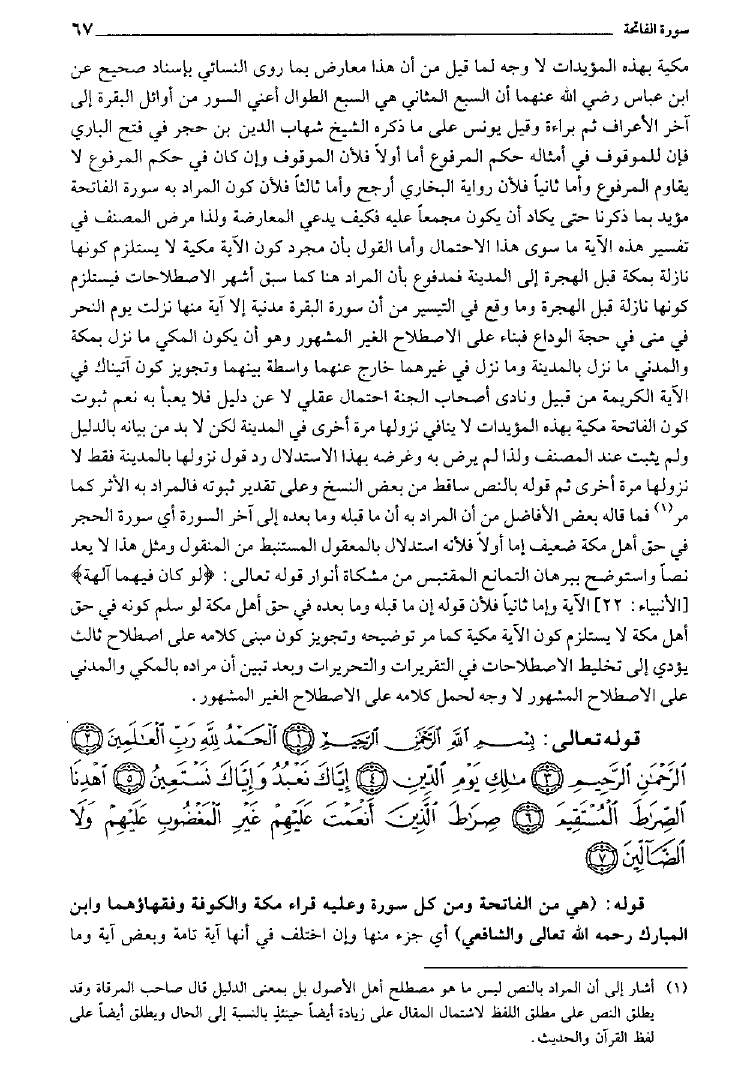 سورة الفاتحة ٦٧
مكية بهذه المؤيدات لا وجه لما قيل من أن هذا معارض بما روى النسائي بإسناد صحيح عن
ابن عباس رضي الله عنهما أن السبع المثاني هي السبع الطوال أعني السور من أوائل البقرة إلى
آخر الأعراف ثم براءة وقيل يونس على ما ذكره الشيخ شهاب الدين بن حجر في فتح الباري
فإن للموقوف في أمثاله حكم المرفوع أما أولاً فلأن الموقوف وإن كان في حكم المرفوع لا
يقاوم المرفوع وأما ثانياً فلأن رواية البخاري أرجح وأما ثالثاً فلأن كون المراد به سورة الفاتحة
مؤيد بما ذكرنا حتى يكاد أن يكون مجمعاً عليه فكيف يدعي المعارضة ولذا مرض المصنف في
تفسير هذه الآية ما سوى هذا الاحتمال وأما القول بأن مجرد كون الآية مكية لا يستلزم كونها
نازلة بمكة قبل الهجرة إلى المدينة فمدفوع بأن المراد هنا كما سبق أشهر الاصطلاحات فيستلزم
كونها نازلة قبل الهجرة وما وقع في التيسير من أن سورة البقرة مدنية إلا آية منها نزلت يوم النحر
في منى في حجة الوداع فبناء على الاصطلاح الغير المشهور وهو أن يكون المكي ما نزل بمكة
والمدني ما نزل بالمدينة وما نزل في غيرهما خارج عنهما واسطة بينهما وتجويز كون آتيناك في
الآية الكريمة من قبيل ونادى أصحاب الجنة احتمال عقلي لا عن دليل فلا يعبأ به نعم ثبوت
كون الفاتحة مكية بهذه المؤيدات لا ينافي نزولها مرة أخرى في المدينة لكن لا بد من بيانه بالدليل
ولم يثبت عند المصنف ولذا لم يرض به وغرضه بهذا الاستدلال رد قول نزولها بالمدينة فقط لا
نزولها مرة أخرى ثم قوله بالنص ساقط من بعض النسخ وعلى تقدير ثبوته فالمراد به الأثر كما
مر(١) فما قاله بعض الأفاضل من أن المراد به أن ما قبله وما بعده إلى آخر السورة أي سورة الحجر
في حق أهل مكة ضعيف إما أولاً فلأنه استدلال بالمعقول المستنبط من المنقول ومثل هذا لا يعد
نصاً واستوضح ببرهان التمانع المقتبس من مشكاة أنوار قوله تعالى: ﴿لو كان فيهما آلهة﴾
[الأنبياء: ٢٢] الآية وإما ثانياً فلأن قوله إن ما قبله وما بعده في حق أهل مكة لو سلم كونه في حق
أهل مكة لا يستلزم كون الآية مكية كما مر توضيحه وتجويز كون مبنى كلامه على اصطلاح ثالث
يؤدي إلى تخليط الاصطلاحات في التقريرات والتحريرات وبعد تبين أن مراده بالمكي والمدني
على الاصطلاح المشهور لا وجه لحمل كلامه على الاصطلاح الغير المشهور.
قوله تعالى: بِسْمِ اللَّهِ الرَّحْمَٰنِ الرَّحِيمِ ١ الْحَمْدُ لِلَّهِ رَبِّ الْعَالَمِينَ ٢
الرَّحْمَٰنِ الرَّحِيمِ ٣ مَالِكِ يَوْمِ الدِّينِ ٤ إِيَّاكَ نَعْبُدُ وَإِيَّاكَ نَسْتَعِينُ ٥ اهْدِنَا
الصِّرَاطَ الْمُسْتَقِيمَ ٦ صِرَاطَ الَّذِينَ أَنْعَمْتَ عَلَيْهِمْ غَيْرِ الْمَغْضُوبِ عَلَيْهِمْ وَلَا
الضَّالِّينَ ٧
قوله: (هي من الفاتحة ومن كل سورة وعليه قراء مكة والكوفة وفقهاؤهما وابن
المبارك رحمه الله تعالى والشافعي) أي جزء منها وإن اختلف في أنها آية تامة وبعض آية وما
(١) أشار إلى أن المراد بالنص ليس ما هو مصطلح أهل الأصول بل بمعنى الدليل قال صاحب المرقاة وقد
يطلق النص على مطلق اللفظ لاشتمال المقال على زيادة أيضاً حينئذٍ بالنسبة إلى الحال ويطلق أيضاً على
لفظ القرآن والحديث.